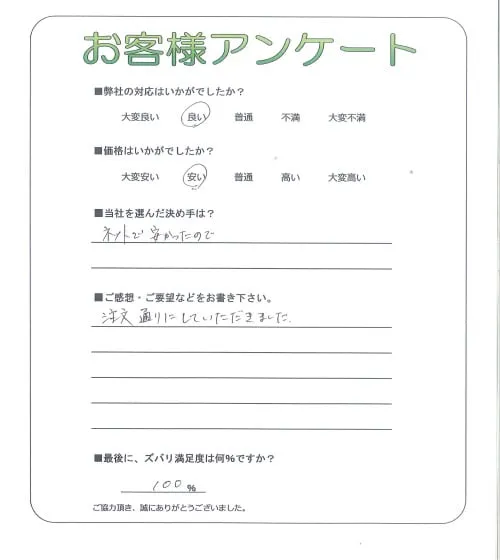 お客様アンケート
■弊社の対応はいかがでしたか？
大変良い 良い 普通 不満 大変不満
■価格はいかがでしたか？
大変安い 安い 普通 高い 大変高い
■当社を選んだ決め手は？
ネットで安かったので
■ご感想・ご要望などをお書き下さい。
注文通りにしていただきました。
■最後に、ズバリ満足度は何％ですか？
100％
ご協力頂き、誠にありがとうございました。